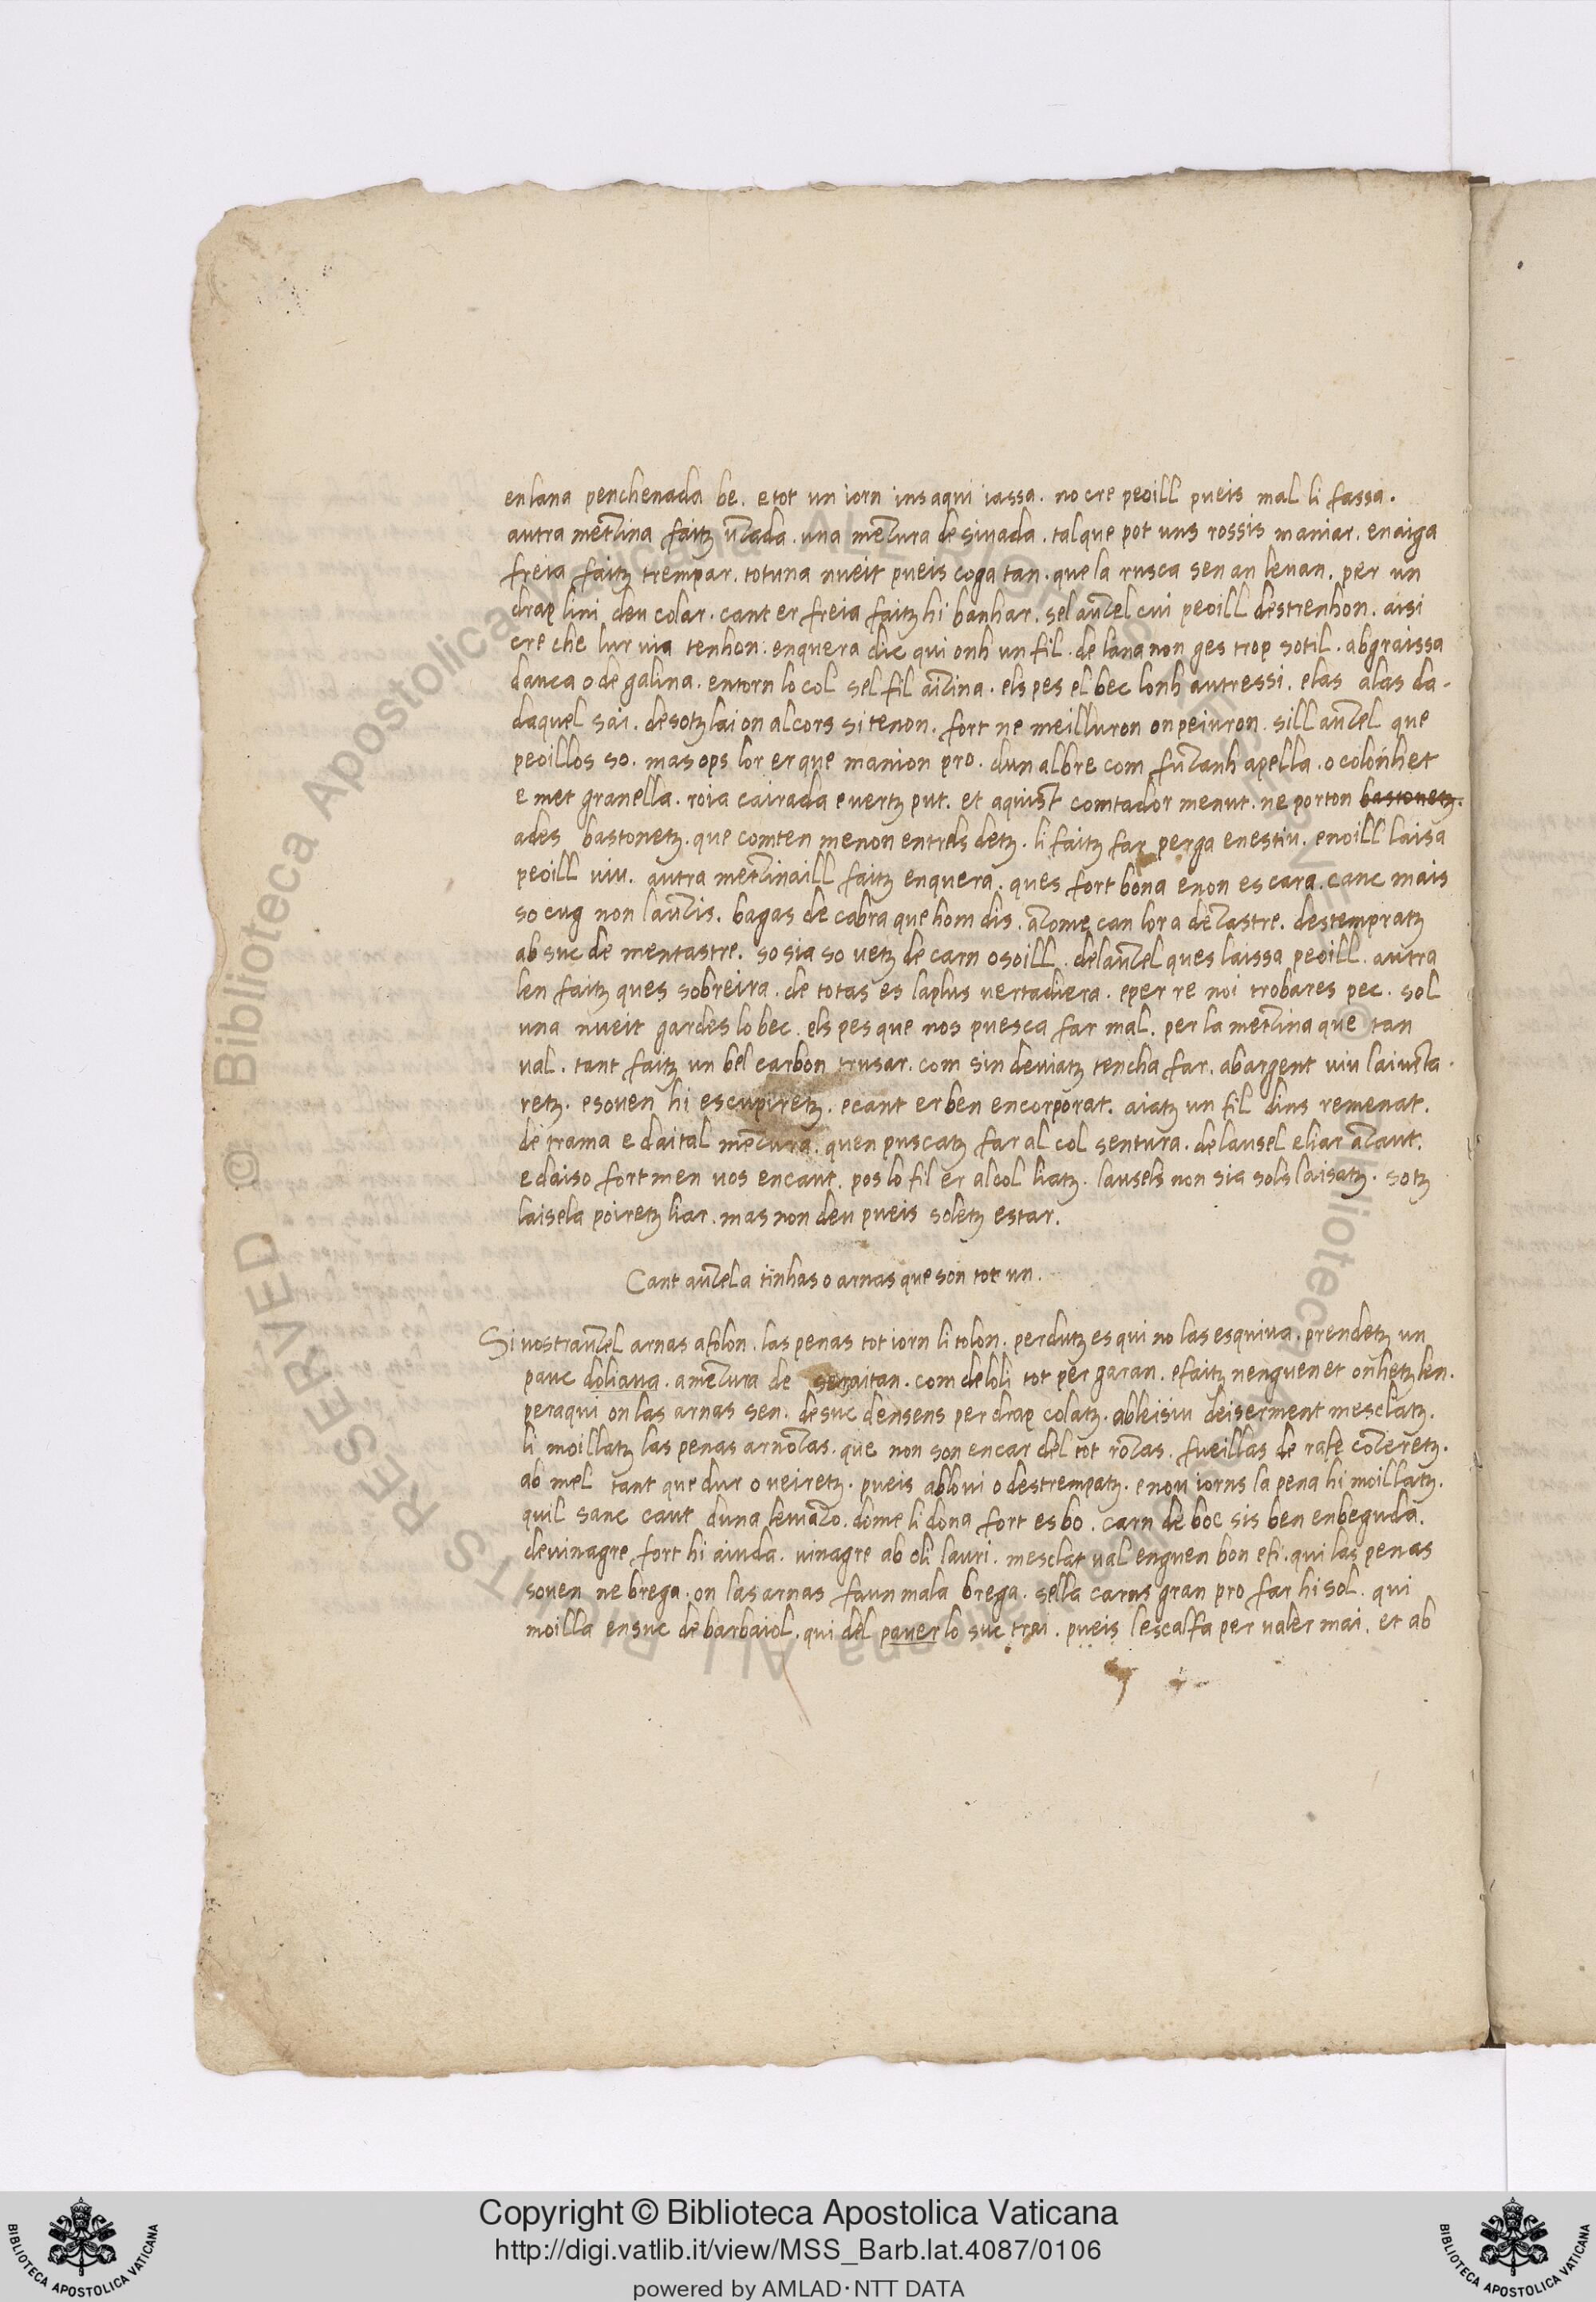 enlana penchenada be. e tot un iorn ins aqui iassa. no cre peoill pueis mal li fassa.
autra metzina faitz uzada. una mezura de siuada. tal que pot uns rossis maniar. en aiga
freia faitz trempar. totuna nueit pueis coga tan. que la rusca sen an leuan. per un
drap lini deu colar. cant er freia faitz hi banhar. sel auzel cui peoill destrenhon. aisi
cre che lur uia tenhon. enquera dic qui onh un fil. de lana non ges trop sotil. ab graissa
dauca o de galina. entorn lo col sel fil aizina. els pes el bec lonh autressi. elas alas da-
daquel sai. desotz lai on al cors si tenon. fort ne meilluron on peiuron. sill auzel que
peoillos so. mas ops lor er que manion pro. dun albre com fuzanh apella. o colonhet
e met granella. roia cairada e uertz put. et aquist comtador menut. ne porton bastonetz.
ades bastonetz. que comten menon entrels detz. li faitz far perga enestiu. e noill laisa
peoill uiu. autra metzinaill faitz enquera. ques fort bona e non es cara. canc mais
so cug non lauzis. bagas de cabra que hom dis. azome can lor a dezastre. destempratz
ab suc de mentastre. so sia so uetz de carn o soill. del auzel ques laissa peoill. autra
len faitz ques sobreira. de totas es la plus uertadiera. e per re noi trobares pec. sol
una nueit gardes lo bec. els pes que nos puesca far mal. per la metzina que tan
ual. tant faitz un bel carbon trusar. com sin deuiatz tencha far. ab argent uiu laiusta-
retz. e souen hi escupiretz. e cant er ben encorporat. aiatz un fil dins remenat.
de trama e daital mezura. quen puscatz far al col sentura. de lausel e liar azaut.
e daiso fortmen uos encaut. pos lo fil er al col liatz. lausels non sia sols laisatz. sotz
laisela poiretz liar. mas non deu pueis soletz estar.
Cant auzel a tinhas o arnas que son tot un.
Si uostr auzel arnas afolon. las penas tot iorn li tolon. perdutz es qui no las esquiua. prendetz un
pauc doliaua. a mezura de aitan. com del oli tot per garan. e faitz nenguen et onhetz len.
per aqui on las arnas sen. de suc densens per drap colatz. ab leisiu deiserment mesclatz.
li moillatz las penas arnozas. que non son encar del tot rozas. fueillas de rafe cozeretz.
ab mel tant que dur o ueiretz. pueis ab loui o destrempatz. e nou iorns la pena hi moillatz.
quil sanc caut duna leuazo. dome li dona fort es bo. carn de boc sis ben enbeguda.
deuinagre fort hi aiuda. uinagre ab oli lauri. mesclat ual enguen bon e fi. qui las penas
souen ne brega. on las arnas faun mala brega. sella carns gran pro far hi sol. qui
moilla ensuc de barbaiol. qui del pauer lo suc trai. pueis lescalfa per ualer mai. et ab
© Biblioteca Apostolica Vaticana ALL RIGHTS RESERVED
© Biblioteca Apostolica Vaticana ALL RIGHTS RESERVED
Copyright © Biblioteca Apostolica Vaticana
http://digi.vatlib.it/view/MSS_Barb.lat.4087/0106
powered by AMLAD·NTT DATA
BIBLIOTECA APOSTOLICA VATICANA
BIBLIOTECA APOSTOLICA VATICANA